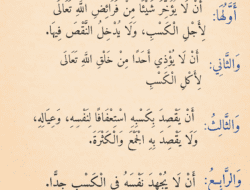 أَوَّلُهَا: أَنْ لَا يُؤَخِّرَ شَيْئًا مِنْ فَرَائِضِ اللَّهِ تَعَالَى
لِأَجْلِ الْكَسْبِ، وَلَا يُدْخِلَ النَّقْصَ فِيهَا.
وَالثَّانِي: أَنْ لَا يُؤْذِيَ أَحَدًا مِنْ خَلْقِ اللَّهِ تَعَالَى
لِأَجْلِ الْكَسْبِ
وَالثَّالِثُ: أَنْ يَقْصِدَ بِكَسْبِهِ اسْتِعْفَافًا لِنَفْسِهِ، وَعِيَالِهِ،
وَلَا يَقْصِدَ بِهِ الْجَمْعَ وَالْكَثْرَةَ.
وَالرَّابِعُ: أَنْ لَا يُجْهِدَ نَفْسَهُ فِي الْكَسْبِ جِدًّا.